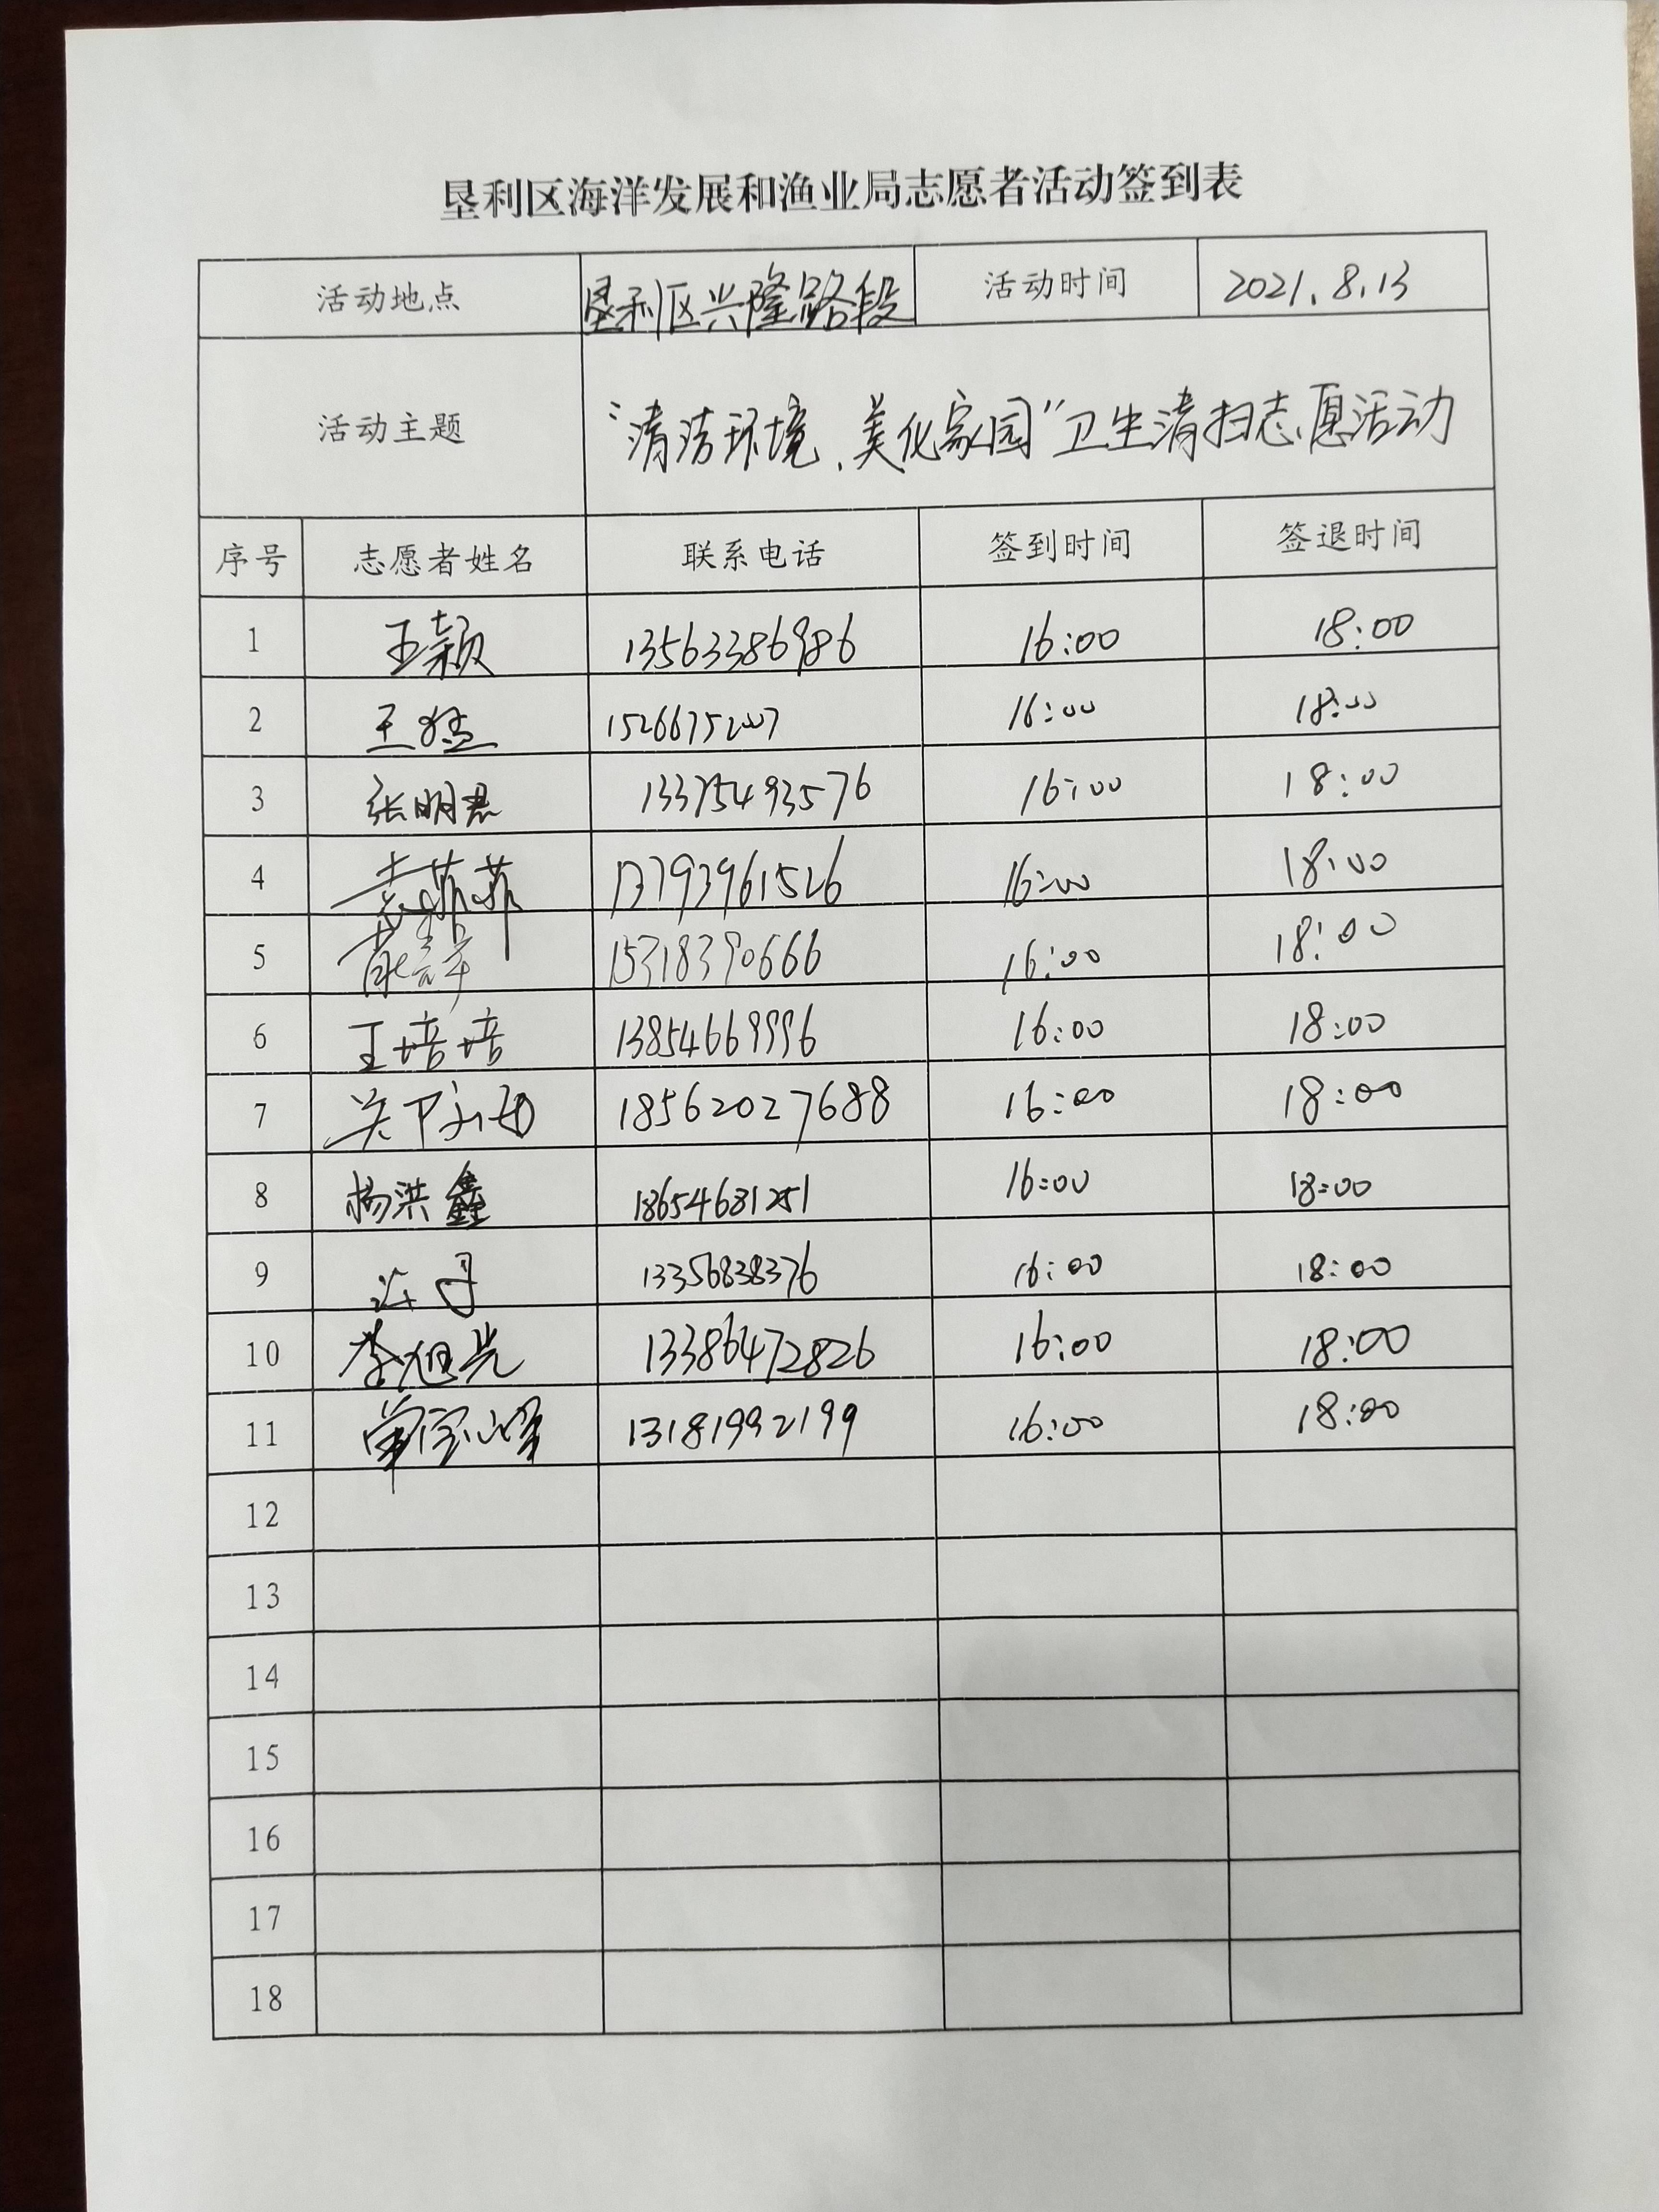 垦利区海洋发展和渔业局志愿者活动签到表
活动地点 垦利区兴隆路段 活动时间 2021.8.13
活动主题 “清洁环境、美化家园”卫生清扫志愿活动
序号 志愿者姓名 联系电话 签到时间 签退时间
1 王颖 13563386986 16:00 18:00
2 王猛 15266752007 16:00 18:00
3 张明君 13375493576 16:00 18:00
4 袁菲菲 13793961526 16:00 18:00
5 15318390666 16:00 18:00
6 王培培 13854669996 16:00 18:00
7 18562027688 16:00 18:00
8 杨洪鑫 18654681251 16:00 18:00
9 许丹 13356838376 16:00 18:00
10 李旭光 13386472826 16:00 18:00
11 13181992199 16:00 18:00
12
13
14
15
16
17
18